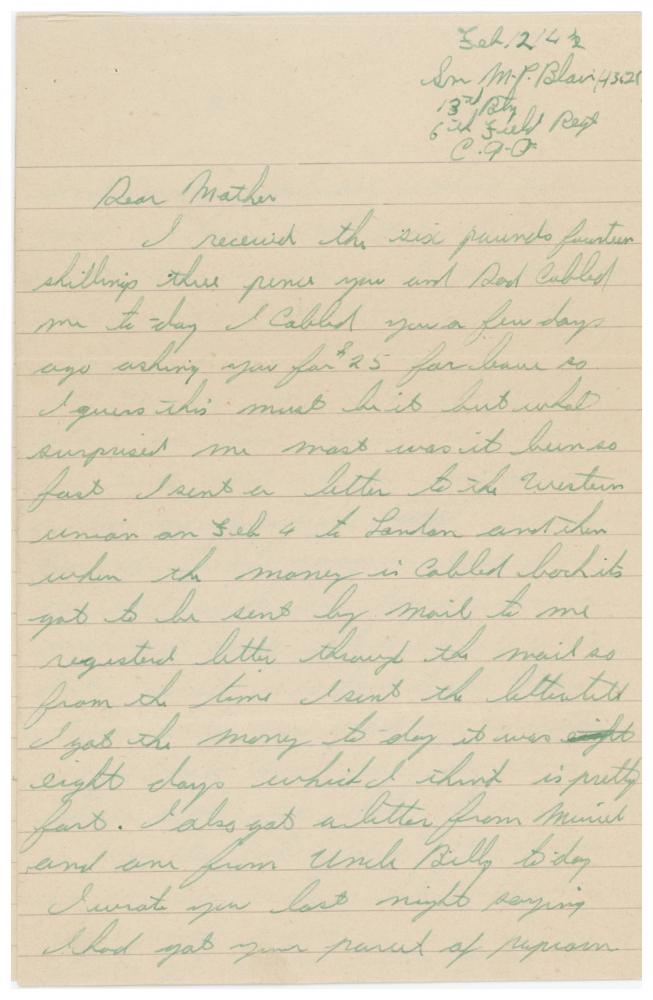 Feb 12/42
Gnr M.P. Blair
13th Bty
6th Field Regt
C.A.O
Dear Mother
I received the six pounds fourteen
shillings three pence you and Dad Cabled
me to-day I Cabled you a few days
ago asking you for $25 for leave so
I guess this must be it but what
surprised me most was it been so
fast I sent a letter to the Western
union on Feb 4 to London and then
when the money is Cabled back its
got to be sent by mail to me
registerd letter through the mail so
from the time I sent the letter till
I got the money to-day it was eight
eight days which I think is pretty
fast. I also got a letter from Muriel
and one from Uncle Billy to day
I wrote you last night saying
I had got your parcel of popcorn